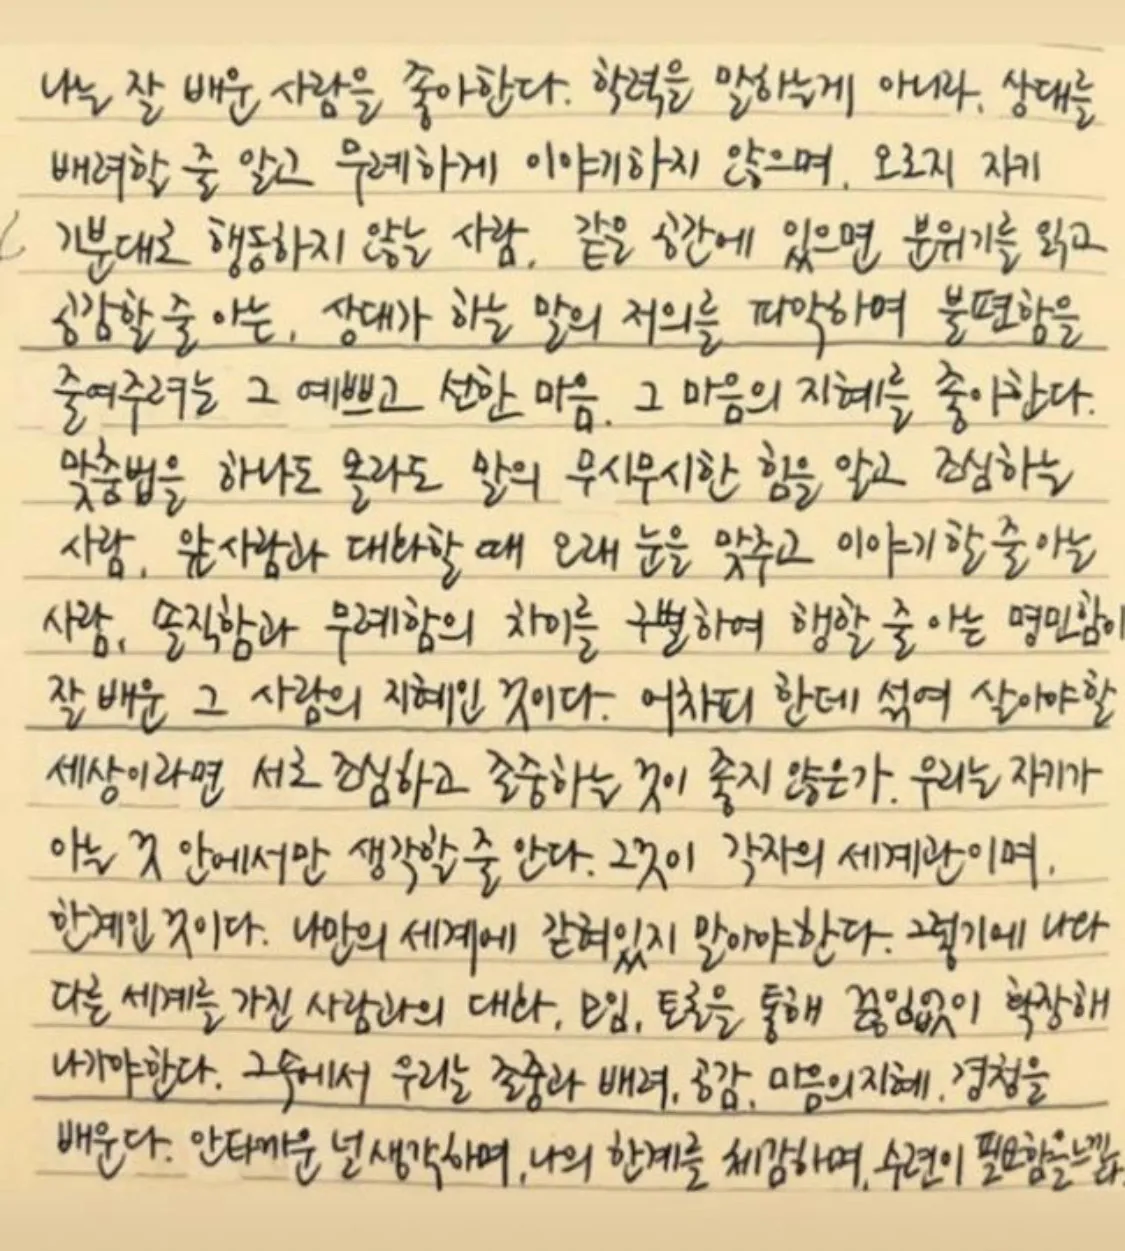 나는 잘 배운 사람을 좋아한다. 학력을 말하는게 아니라, 상대를
배려할 줄 알고 무례하게 이야기하지 않으며, 오로지 자기
기분대로 행동하지 않는 사람. 같은 공간에 있으면 분위기를 읽고
공감할 줄 아는, 상대가 하는 말의 저의를 파악하며 불편함을
줄여주려는 그 예쁘고 선한 마음. 그 마음의 지혜를 좋아한다.
맞춤법을 하나도 몰라도 말의 무시무시한 힘을 알고 조심하는
사람, 앞사람과 대화할 때 오래 눈을 맞추고 이야기할 줄 아는
사람, 솔직함과 무례함의 차이를 구별하여 행할 줄 아는 명민함이
잘 배운 그 사람의 지혜인 것이다. 어차피 한데 섞여 살아야할
세상이라면 서로 조심하고 존중하는 것이 좋지 않은가. 우리는 자기가
아는 것 안에서만 생각할 줄 안다. 그것이 각자의 세계관이며,
한계인 것이다. 나만의 세계에 갇혀있지 말아야한다. 그렇기에 나와
다른 세계를 가진 사람과의 대화, 모임, 토론을 통해 끊임없이 확장해
나가야한다. 그속에서 우리는 존중과 배려, 공감, 마음의지혜, 경청을
배운다. 안타까운 널 생각하며, 나의 한계를 체감하며, 수련이 필요함을느낀다.